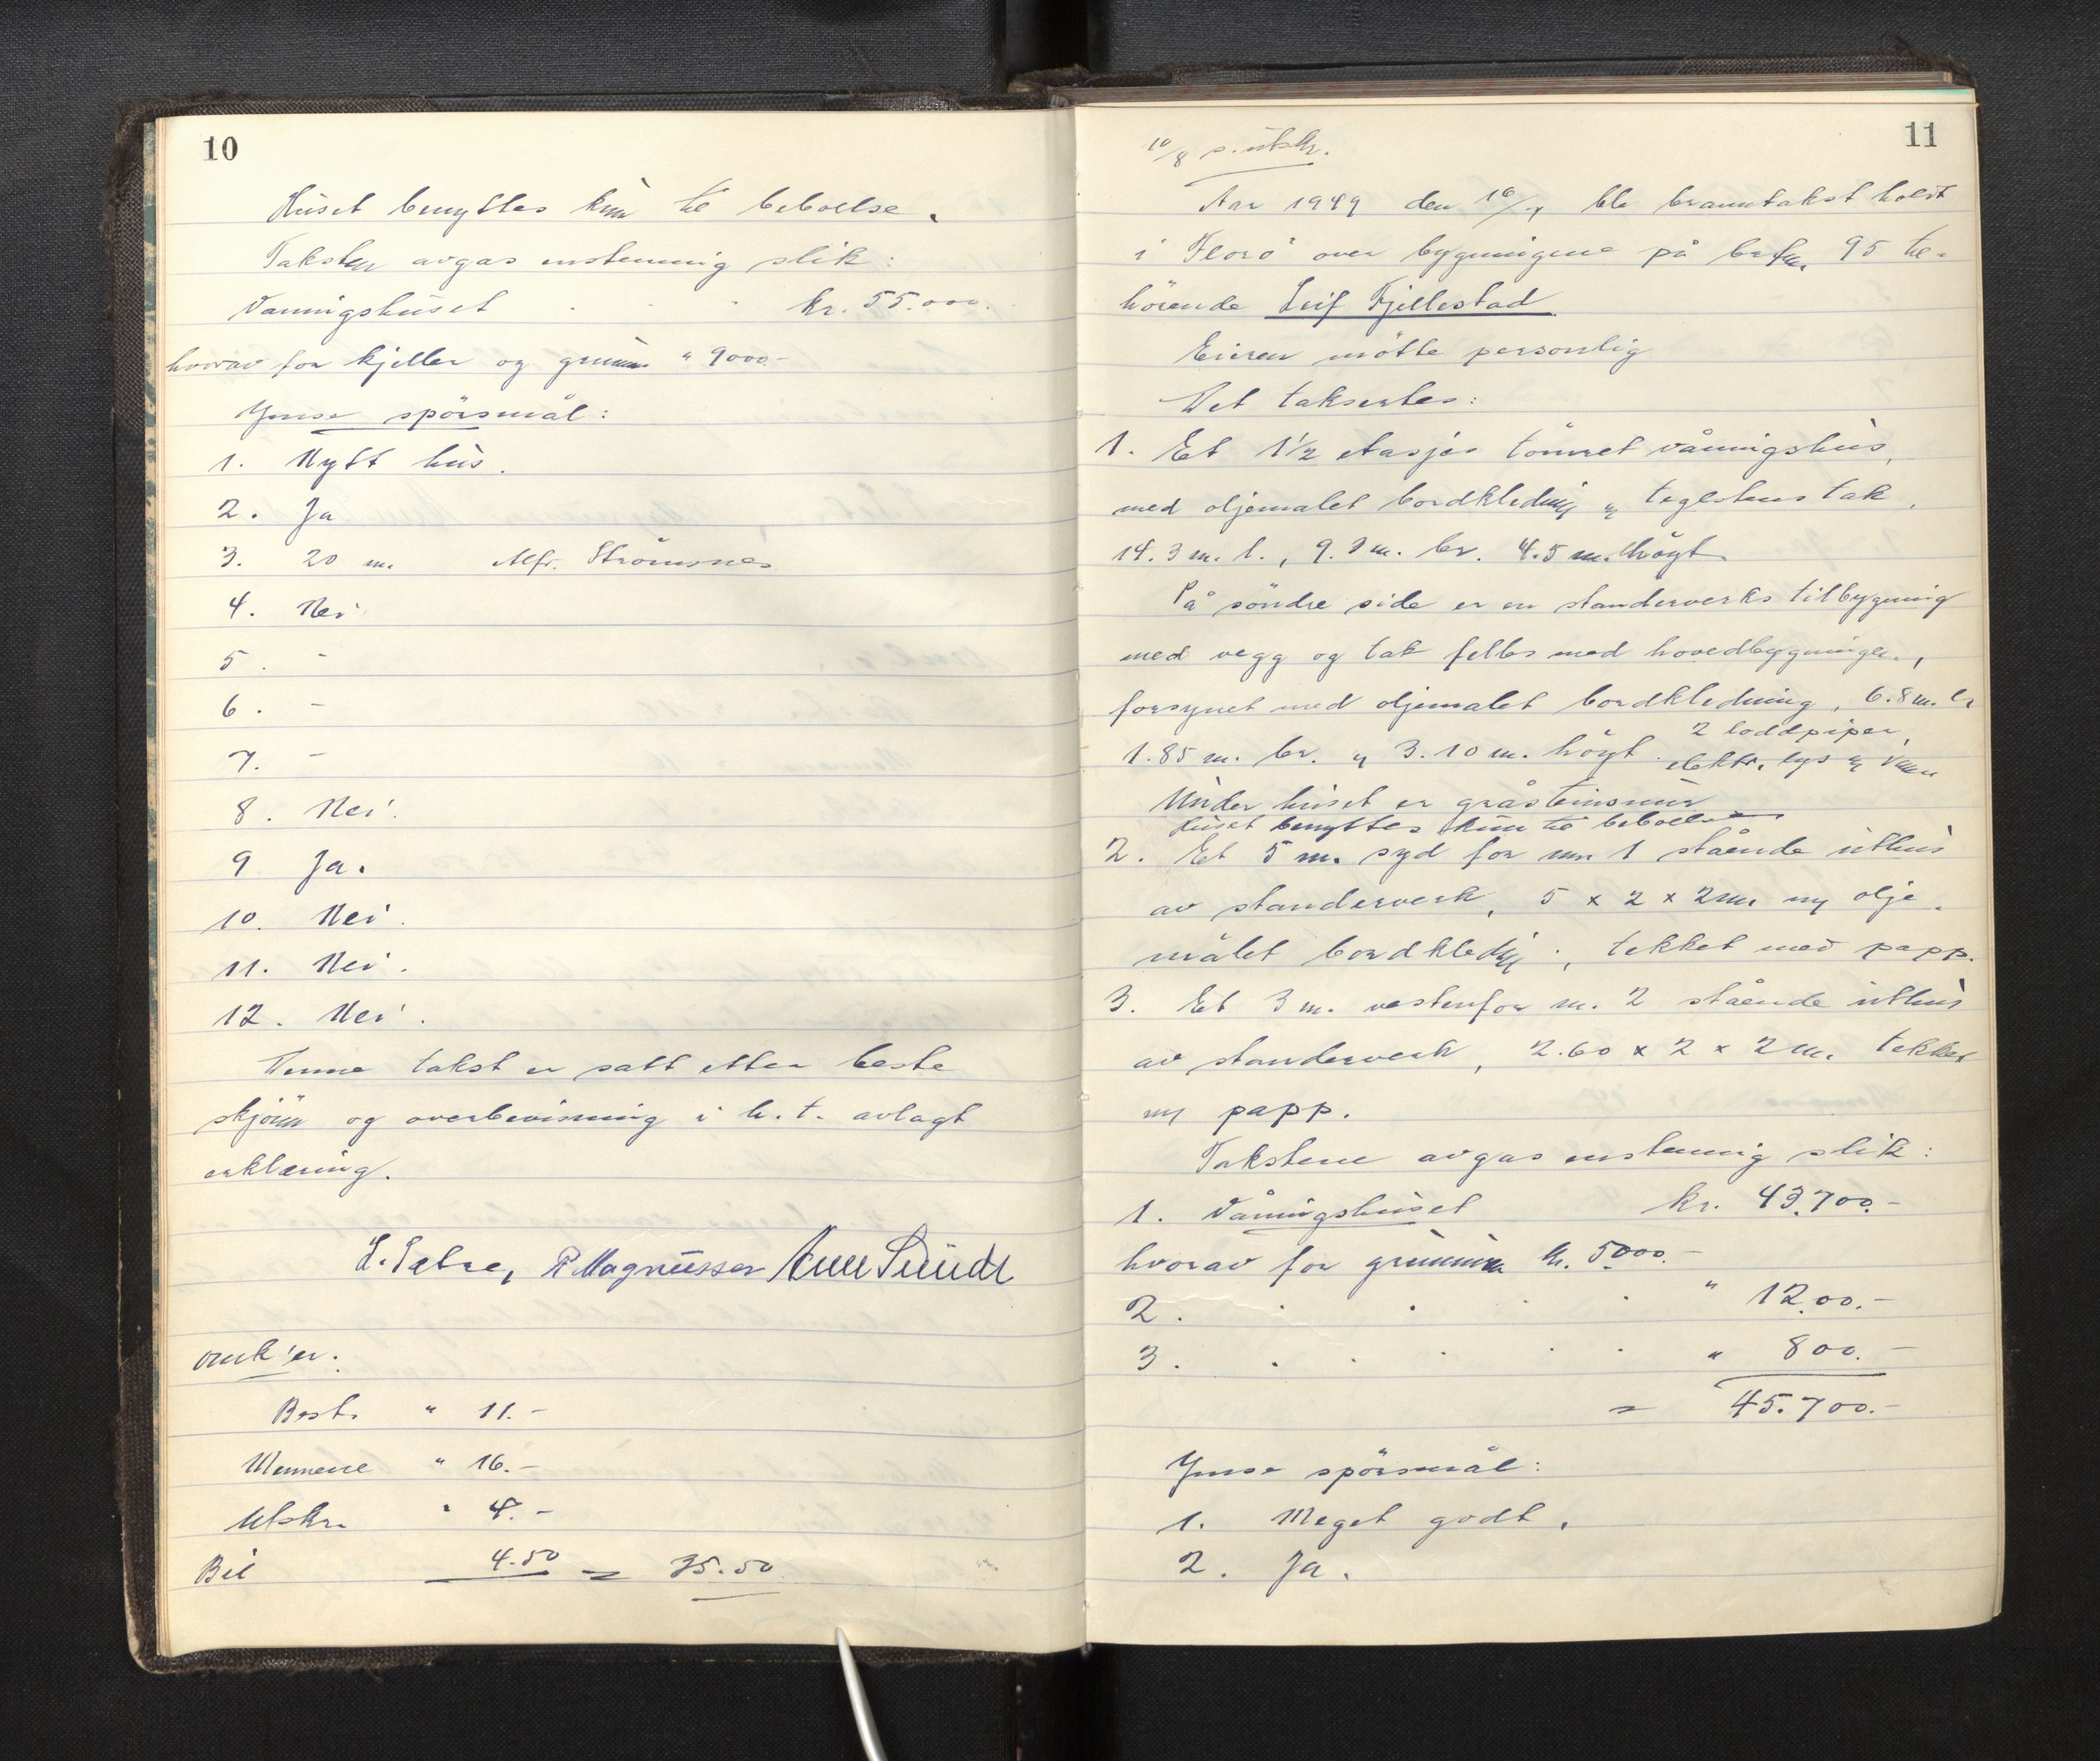 10
Huset benyttes kun til beboelse.
Taksten avgas enstemmig slik:
Vanningshuset kr. 55.000.
hvorav for kjeller og grunn " 9000.-
Ymse spörsmål:
1. Nytt hus.
2. Ja
3. 20 m. Alfr. Strömsnes
4. Nei
5. -
6. -
7. -
8. Nei.
9 Ja.
10. Nei.
11. Nei.
12. Nei.
Denne takst er satt etter beste
skjönn og overbevisning i h.t. avlagt
erklæring.
R. Magnussen
Best. " 11.-
Mennene " 16.-
Utskr. " 4.-
Bil 4.50 = 35.50
11
10/8 s. utskr.
Aar 1949 den ble branntakst holdt
i Florö over bygningene på br.nr. 95 til-
hörende Leif Fjellestad
Eieren mötte personlig
Det taksertes:
1. Et 1½ etasjes tömret våningshus,
med oljemalet bordkledning og teglstens tak,
14.3 m. l., 9.3 m. br. 4.5 m. högt
På söndre side er en standerverks tilbygning
med vegg og tak felles med hovedbygningen,
forsynet med oljemalet bordkledning, 6.8 m. l.
1.85 m. br. og 3.10 m. högt. 2 loddpiper,
elektr. lys og vann
Under huset er gråsteinsmur
Huset benyttes kun til beboelse
2. Et 5 m. syd for nr 1 stående uthus
av standerverk, 5 x 2 x 2 m. m/ olje-
målet bordkledn., tekket med papp.
3. Et 3 m. vestenfor nr. 2 stående uthus
av standerverk, 2.60 x 2 x 2 m. tekket
m/ papp.
Takstene avgas enstemmig slik:
1. Våningshuset kr. 43.700.-
hvorav for grunnm. kr. 5000.-
2. . . . . " 12.00.-
3. . . . . . " 800.-
= 45.700.-
Ymse spörsmål:
1. Meget godt.
2. Ja.